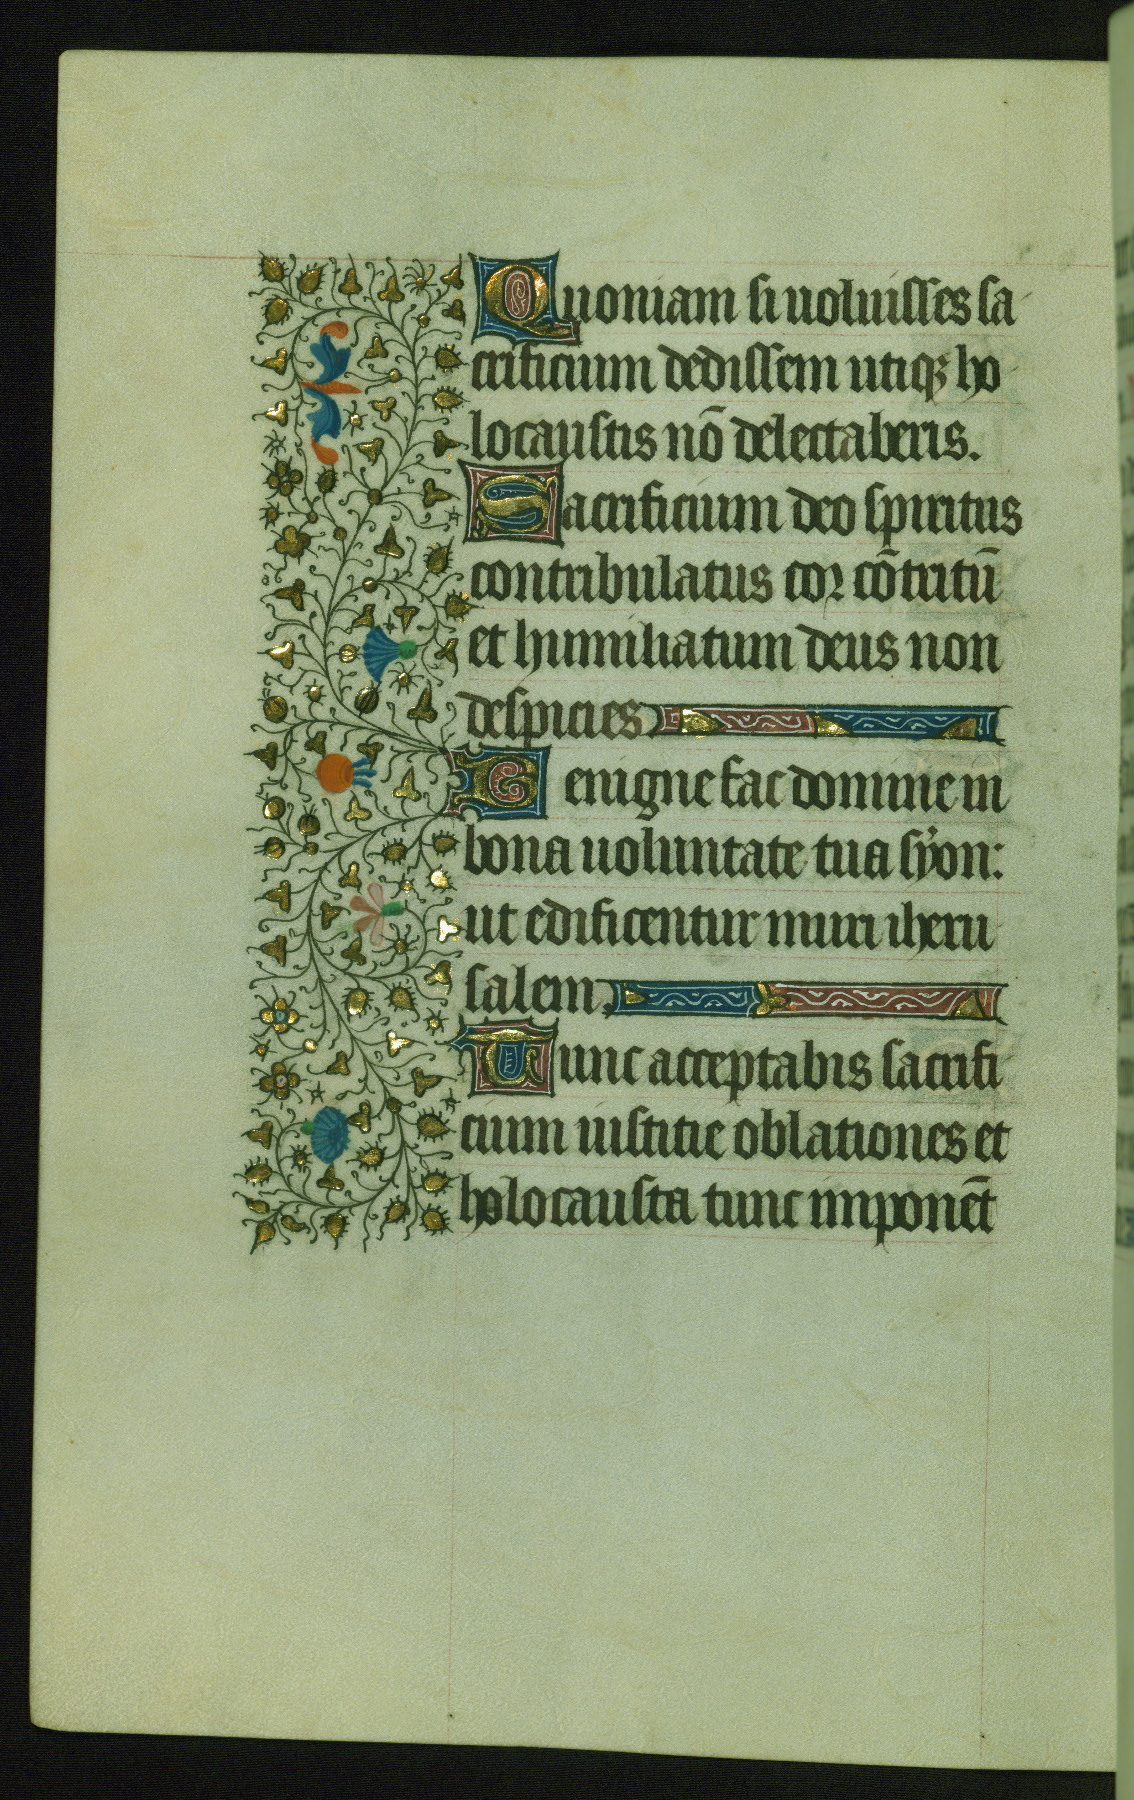 Quoniam si uoluisses sa
crificium dedissem utiqꝫ ho
locaustis nō delectaberis.
Sacrificium deo spiritus
contribulatus cor cōtritū
et humiliatum deus non
despicies
Benigne fac domine in
bona uoluntate tua syon:
ut edificentur muri iheru
salem.
Tunc acceptabis sacrifi
cium iusticie oblationes et
holocausta tunc imponēt